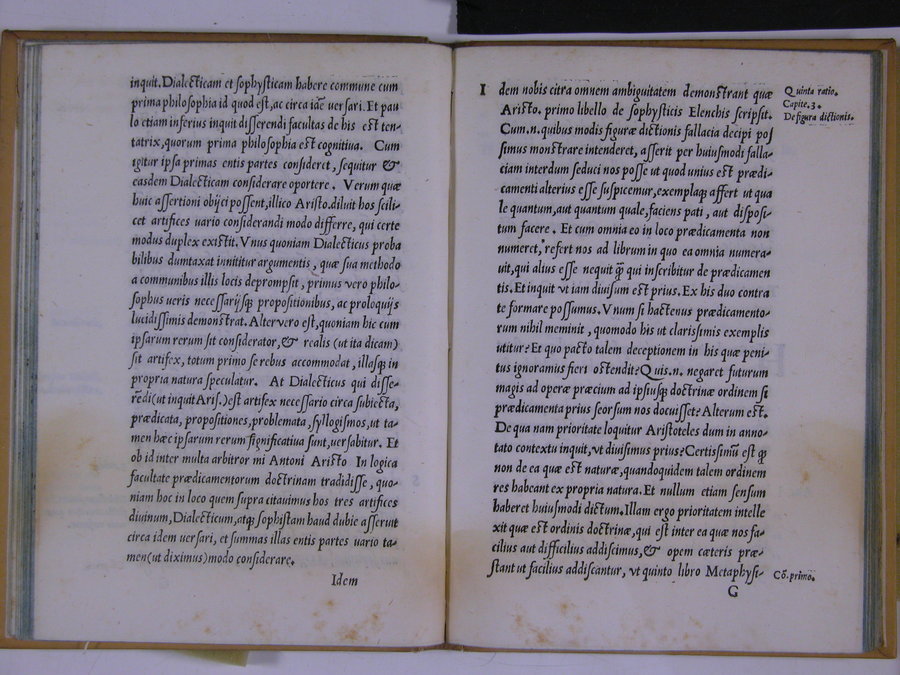 inquit. Dialecticam et sophysticam habere commune cum
prima philosophia id quod est, ac circa iāc uersari. Et pau
lo etiam inferius inquit disserendi facultas de his est ten-
tatrix, quorum prima philosophia est cognitiua. Cum
igitur ipsa primas entis partes consideret, sequitur &
easdem Dialecticam considerare oportere. Verum quæ
huic assertioni obijci possent, illico Aristo. diluit hos scili-
cet artifices uario considerandi modo differre, qui certe
modus duplex existit. Vnus quoniam Dialecticus proba
bilibus dumtaxat innititur argumentis, quæ sua methodo
a communibus illis locis deprompsit, primus vero philo-
sophus ueris necessarijsq; propositionibus, ac proloquijs
lucidissimis demonstrat. Alter vero est, quoniam hic cum
ipsarum rerum sit considerator, & realis (ut ita dicam)
sit artifex, totum primo se rebus accommodat, illasq; in
propria natura speculatur. At Dialecticus qui disse-
rēdi (ut inquit Aris.) est artifex necessario circa subiecta,
prædicata, propositiones, problemata, syllogismos, ut ta-
men hæc ipsarum rerum significatiua sunt, uersabitur. Et
ob id inter multa arbitror mi Antoni Aristo In logica
facultate prædicamentorum doctrinam tradidisse, quo-
niam hoc in loco quem supra citauimus hos tres artifices
diuinum, Dialecticum, atq; sophistam haud dubie asseruit
circa idem uersari, et summas illas entis partes uario ta-
men (ut diximus) modo considerare.
Idem
I dem nobis citra omnem ambiguitatem demonstrant quæ
Aristo. primo libello de sophysticis Elenchis scripsit.
Cum .n. quibus modis figuræ dictionis fallacia decipi pos
simus monstrare intenderet, asserit per huiusmodi falla-
ciam interdum seduci nos posse ut quod unius est prædi-
camenti alterius esse suspicemur, exemplaq; affert ut qua
le quantum, aut quantum quale, faciens pati, aut disposi-
tum facere. Et cum omnia eo in loco prædicamenta non
numeret, refert nos ad librum in quo ea omnia numera-
uit, qui alius esse nequit q̃ qui inscribitur de prædicamen
tis. Et inquit vt iam diuisum est prius. Ex his duo contra
te formare possumus. Vnum si hactenus prædicamento-
rum nihil meminit, quomodo his ut clarissimis exemplis
utitur? Et quo pacto talem deceptionem in his quæ peni-
tus ignoramus fieri ostendit? Quis .n. negaret futurum
magis ad operæ præcium ad ipsiusq; doctrinæ ordinem si
prædicamenta prius seorsum nos docuisset? Alterum est.
De qua nam prioritate loquitur Aristoteles dum in anno-
tato contextu inquit, vt diuisimus prius? Certissimū est q
non de ea quæ est naturæ, quandoquidem talem ordinem
res habeant ex propria natura. Et nullum etiam sensum
haberet huiusmodi dictum. Illam ergo prioritatem intelle
xit quæ est ordinis doctrinæ, qui est inter ea quæ nos fa-
cilius aut difficilius addiscimus, & opem cæteris præ-
stant ut facilius addiscantur, vt quinto libro Metaphysi-
G
Quinta ratio.
Capite. 3.
De figura dictionis.
Cō. primo.